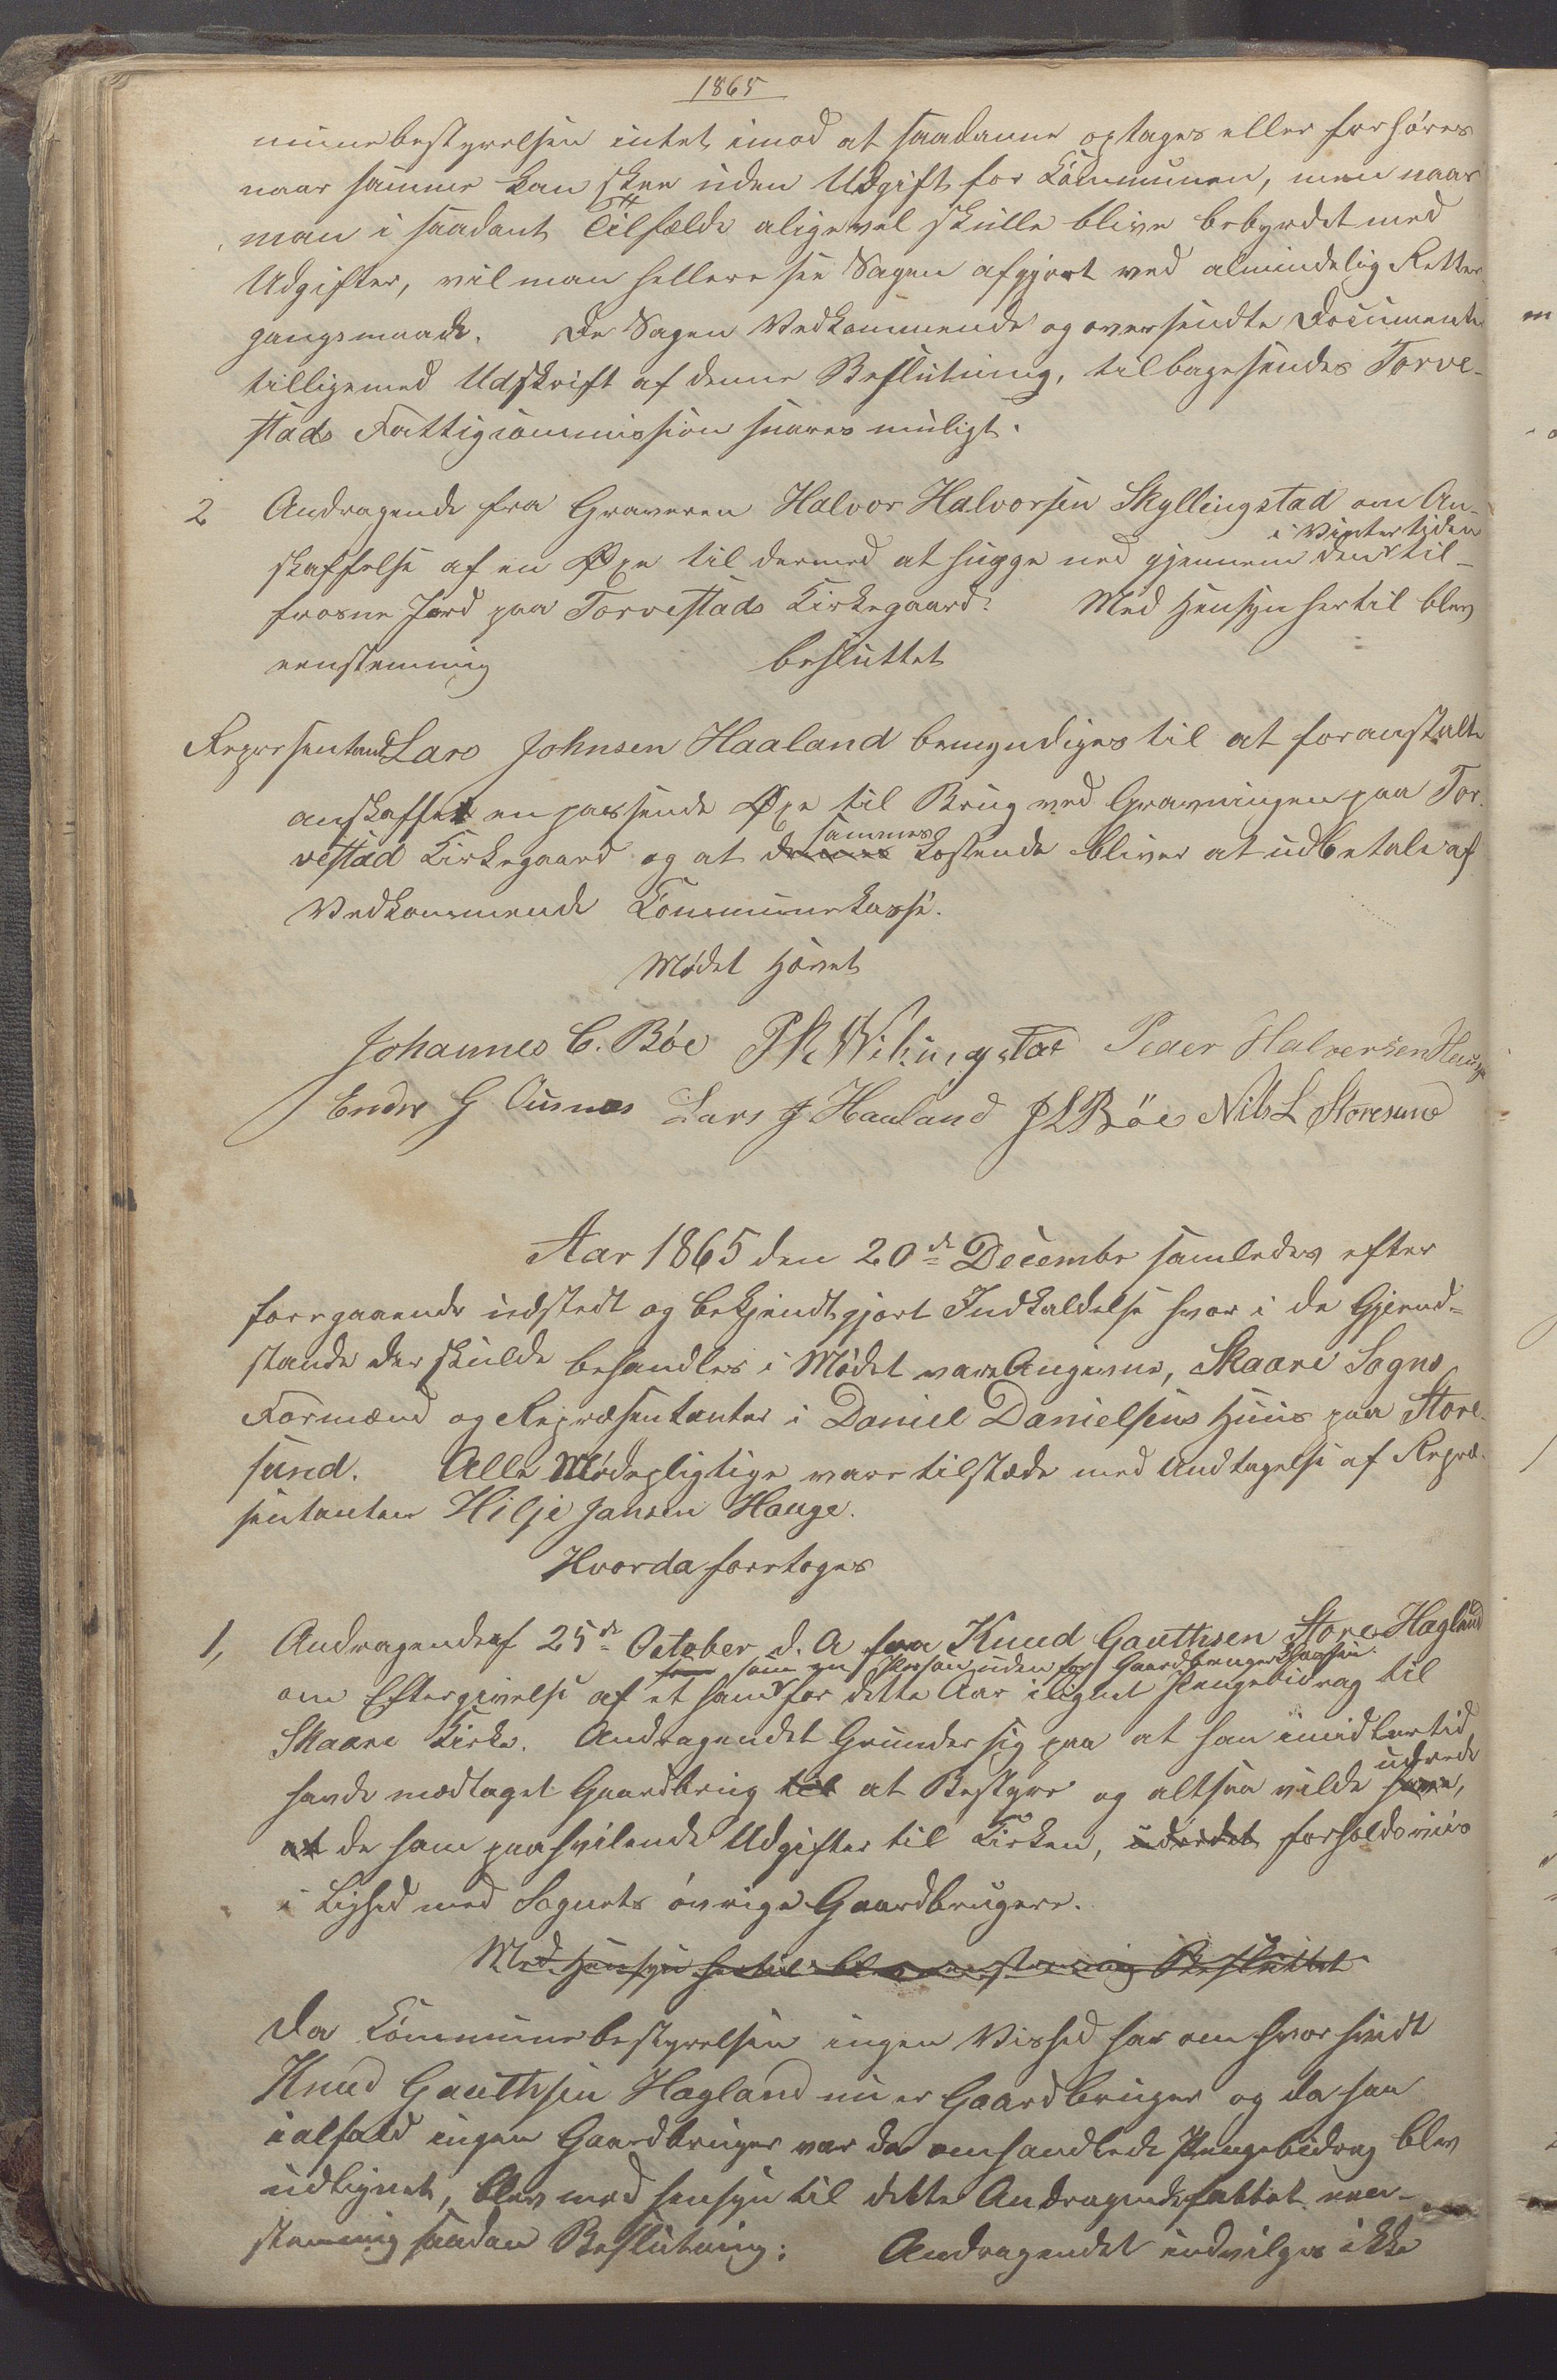 1865
munebestyrelsen intet imod at saadanne optages eller forhöres
naar samme kan skee uden Udgift for Kommunen, men naar
man i saadant Tilfælde aligevel skulle blive bebyrdet med
Udgifter, vil man hellere see Sagen afgjort ved almindelig Retter-
gangsmaade. De Sagen Vedkommende og oversendte Documenter
tilligemed Udskrift af denne Beslutning, tilbagesendes Torve-
stads Fattigcommission snares muligt.
2 Andragende fra Graveren Halvor Halvorsen Skyllingstad om An-
i Vintertiden
skaffelse af en Øxe til dermed at hugge ned gjennem den til-
frosne Jord paa Torvestads Kirkegaard. Med Hensyn hertil blev
eenstemmig besluttet
Represententant Lars Johnsen Haaland bemyndiges til at foranstalte
anskaffet en passende Øxe til Brug ved Gravningen paa Tor-
sammes
vestad Kirkegaard og at dennes Kostende bliver at udbetale af
Vedkommende Kommunekasse.
Mødet Hævet
Johannes C. Böe P R Wikingstad Peder Halversen Hauge
Endre G Ausnes Lars J Haaland J L Böe Nils L Storesund
Aar 1865 den 20de Decembr samledes efter
foregaaende udstedt og bekjendtgjort Indkaldelse hvor i de Gjend-
stande der skulde behandles i Mödet vare Angivne, Skaare Sogns
Formænd og Repræsentanter i Daniel Danielsens Huus paa Store-
sund. Alle Mödepligtige vare tilstæde med Undtagelse af Repræ-
sentanten Hilje Jansen Hauge.
Hvorda foretoges
1, Andragende af 25de October d. A fra Knud Gauthsen Store Hagland
som en Person uden for Gaardbrugerklassen
om Eftergivelse af et ham for dette Aar ilignet Pengebidrag til
Skaare Kirke. Andragendet Grunder sig paa at han imidlertid
udrede
havde modtaget Gaardbrug til at Bestyre og altsaa vilde have,
at de ham paahvilende Udgifter til Kirken, udredet forholdsviis
i Lighed med Sognets øvrige Gaardbrugere.
Med Hensyn hertil blev eenstemmig Besluttet
Da Kommunebestyrelsen ingen Vished har om hvorvidt
Knud Gauthsen Hagland nu er Gaardbruger og da han
ialfald ingen Gaardbruger var da omhandlede Pengebidrag blev
udlignet, blev med hensyn til dette Andragende fattet een-
stemmig saadan Beslutning: Andragendet indvilges ikke